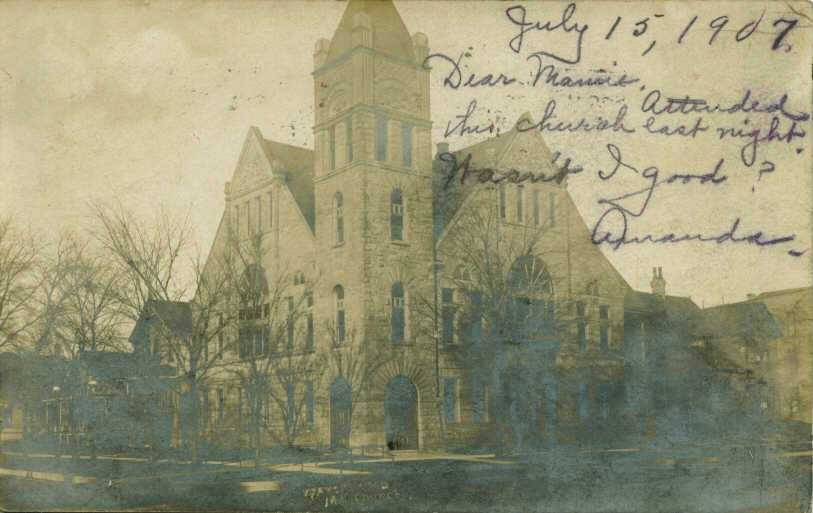 July 15, 1907.
Dear Mamie,
Attended
this church last night.
Wasn't I good?
Amanda.